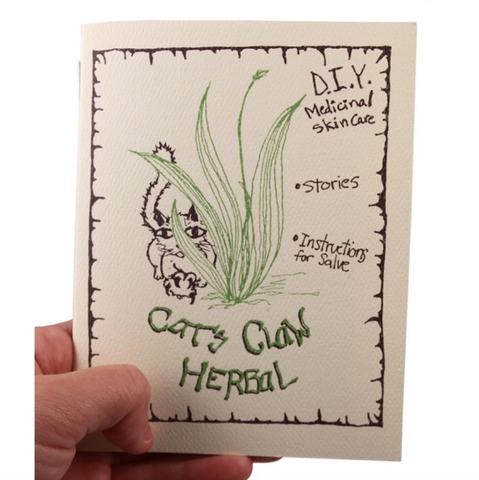 D.I.Y.
Medicinal
Skin Care
•Stories
•Instructions
for Salve
Cat's Claw
Herbal